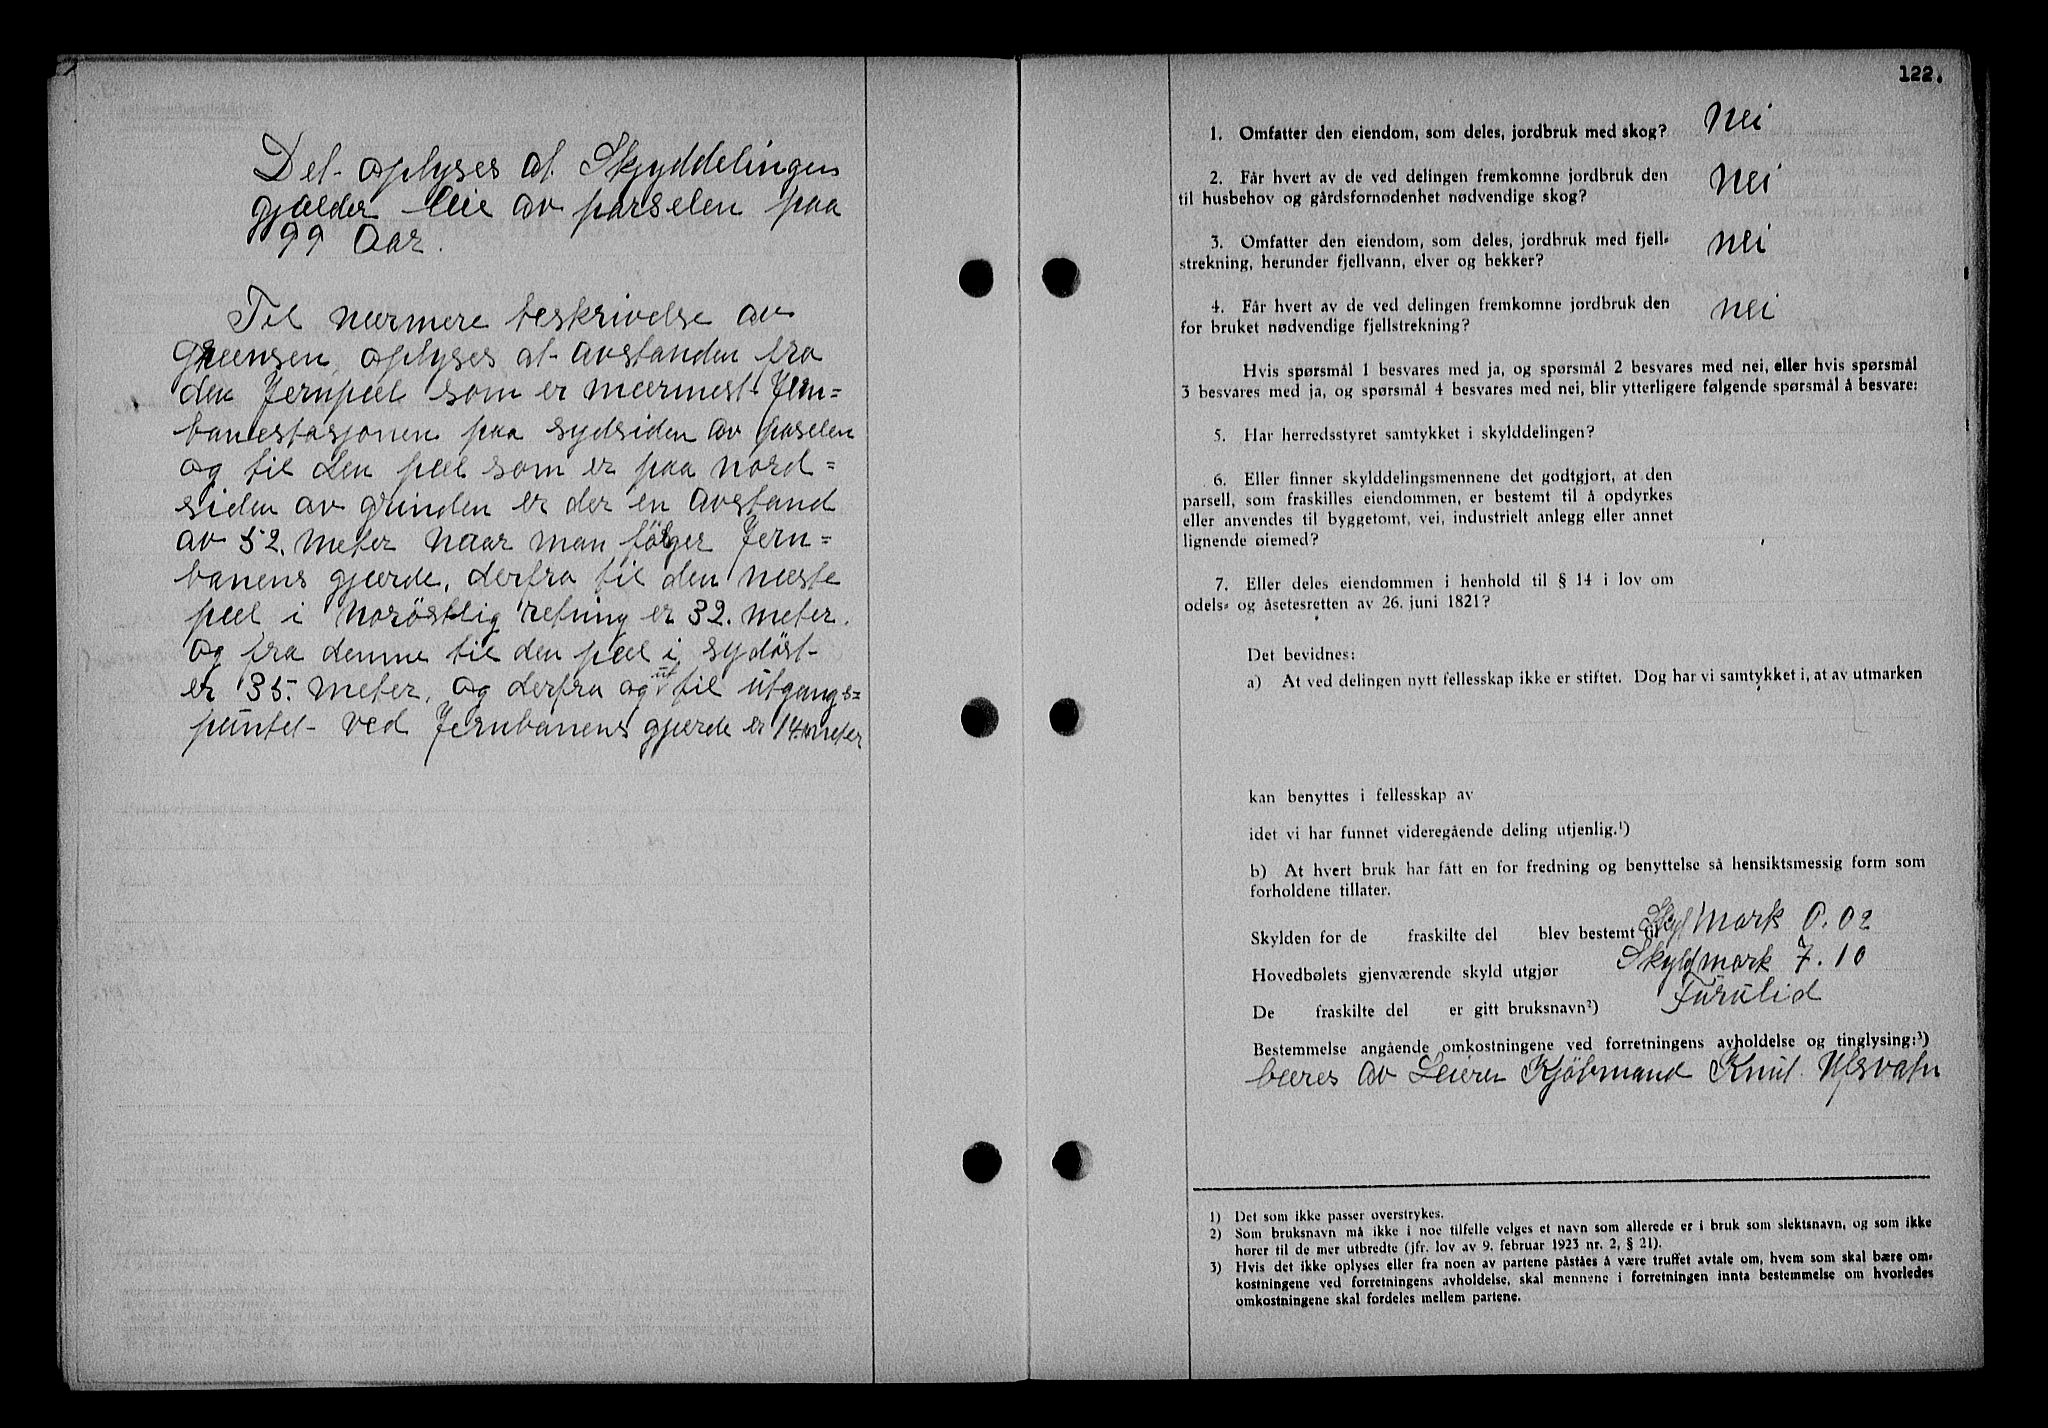 Det oplyses at Skjyddelingen
gjælder leie av parselen paa
99 Aar.
Til nærmere beskrivelse av
Grænsen, oplyses at avstanden fra
den Jernpæl som er nærmest Jern=
banestasjonen paa sydsiden av paselen
og til den pæl som er paa nord=
siden av grinden er der en avstand
av 52. meter naar man følger Jern=
banens gjærde, derfra til den næste
pæl i norøstlig retning er 32. meter.
og fra denne til den pæl i sydøst
er 35. meter, og derfra og ut til utgangs=
puntet ved Jernbanens gjærde er 14 meter
122.
1. Omfatter den eiendom, som deles, jordbruk med skog? Nei
2. Får hvert av de ved delingen fremkomne jordbruk den
til husbehov og gårdsfornødenhet nødvendige skog? Nei
3. Omfatter den eiendom, som deles, jordbruk med fjell-
strekning, herunder fjellvann, elver og bekker? nei
4. Får hvert av de ved delingen fremkomne jordbruk den
for bruket nødvendige fjellstrekning? nei
Hvis spørsmål 1 besvares med ja, og spørsmål 2 besvares med nei, eller hvis spørsmål
3 besvares med ja, og spørsmål 4 besvares med nei, blir ytterligere følgende spørsmål å besvare:
5. Har herredsstyret samtykket i skylddelingen?
6. Eller finner skylddelingsmennene det godtgjort, at den
parsell, som fraskilles eiendommen, er bestemt til å opdyrkes
eller anvendes til byggetomt, vei, industrielt anlegg eller annet
lignende øiemed?
7. Eller deles eiendommen i henhold til § 14 i lov om
odels- og åsetesretten av 26. juni 1821?
Det bevidnes:
a) At ved delingen nytt fellesskap ikke er stiftet. Dog har vi samtykket i, at av utmarken
kan benyttes i fellesskap av
idet vi har funnet videregående deling utjenlig.¹)
b) At hvert bruk har fått en for fredning og benyttelse så hensiktsmessig form som
forholdene tillater.
Skylden for de fraskilte del blev bestemt til Skyl mark 0.02
Hovedbølets gjenværende skyld utgjør Skyldmark 7.10
De fraskilte del er gitt bruksnavn²) Furulid
Bestemmelse angående omkostningene ved forretningens avholdelse og tinglysing:³)
bæres av Leieren Kjøbmand Knut Ufsvatn
1) Det som ikke passer overstrykes.
2) Som bruksnavn må ikke i noe tilfelle velges et navn som allerede er i bruk som slektsnavn, og som ikke
hører til de mer utbredte (jfr. lov av 9. februar 1923 nr. 2, § 21).
3) Hvis det ikke oplyses eller fra noen av partene påståes å være truffet avtale om, hvem som skal bære om-
kostningene ved forretningens avholdelse, skal mennene i forretningen innta bestemmelse om hvorledes
omkostningene skal fordeles mellem partene.